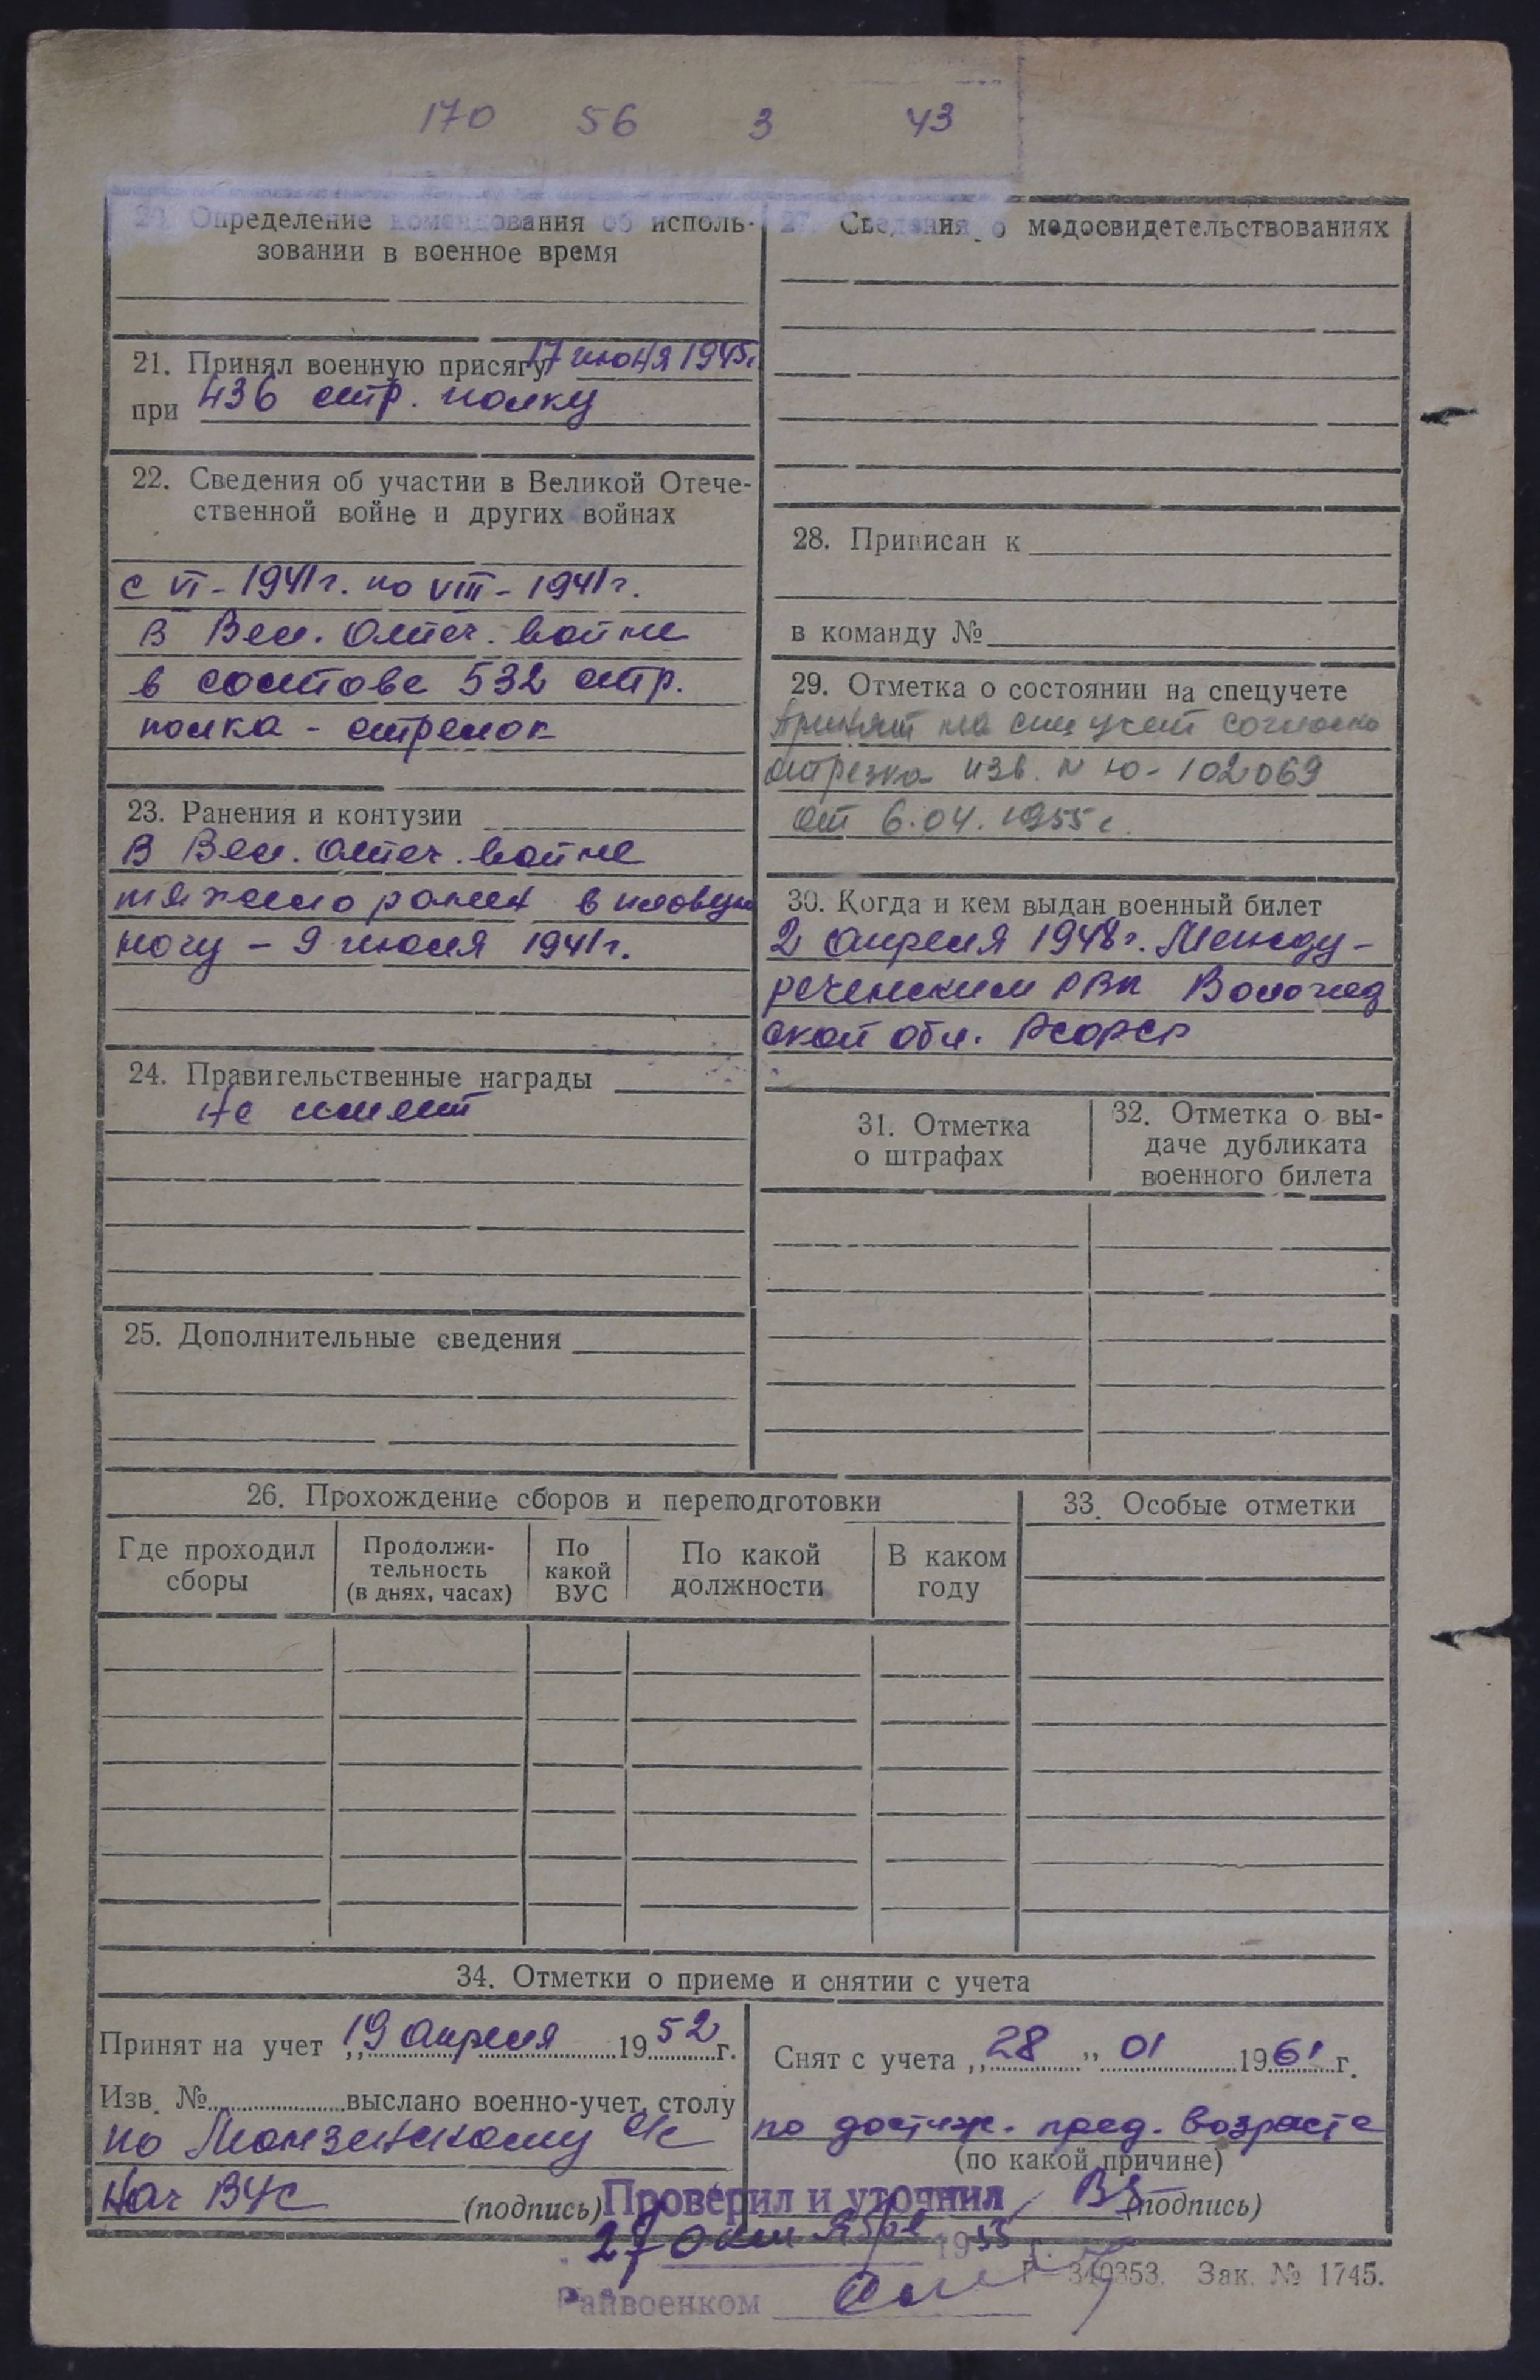 170 56 3 43
20. Определение командования об исполь-
зовании в военное время
21. Принял военную присягу 17 июня 1945г
при 436 стр. полку
22. Сведения об участии в Великой Отече-
ственной войне и других войнах
с VI - 1941г. по VIII - 1941г.
в Вел. Отеч. войне
в составе 532 стр.
полка - стрелок
23. Ранения и контузии
В Вел. Отеч. войне
тяжело ранен в левую
ногу - 9 июля 1941г.
24. Правительственные награды
Не имеет
25. Дополнительные сведения
27. Сведения о медосвидетельствованиях
28. Приписан к
в команду №
29. Отметка о состоянии на спецучете
Принят на спец учет согласно
отрезка изв. № Ю-102069
от 6.04.1955г.
30. Когда и кем выдан военный билет
2 апреля 1948г. Между-
реченским РВК Вологод
ской обл. РСФСР
31. Отметка
о штрафах
32. Отметка о вы-
даче дубликата
военного билета
26. Прохождение сборов и переподготовки
Где проходил
сборы
Продолжи-
тельность
(в днях, часах)
По
какой
ВУС
По какой
должности
В каком
году
33. Особые отметки
34. Отметки о приеме и снятии с учета
Принят на учет „19 апреля 1952 г.
Изв. № выслано военно-учет. столу
по Монзенскому с/с
Нач ВУС (подпись)
Снят с учета „28” 01 1961 г.
по достиж. пред. возраста
(по какой причине)
(подпись)
Проверил и уточнил
27 октября 1955 г.
Райвоенком
Г-340353. Зак. № 1745.